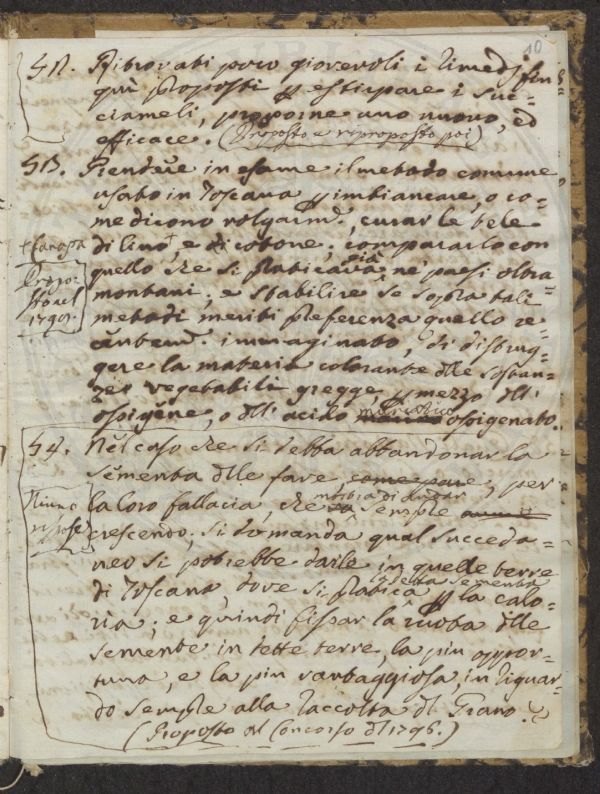 10
§ 12. Ritrovati poco giovevoli i rimedj fin
quì proposti p estirpare i suc=
ciameli, proporne uno nuovo, ed
efficace. (Proposto e riproposto poi)
§ 13. Prendere in esame il metodo comune
usato in Toscana p imbiancare, o co=
me dicono volgarm.e, curar le tele
di lino+, e di cotone; compararlo con
+ Canapa
quello che si praticava già ne' paesi oltra
Propo=
sto nel
1797.
montani; e stabilire se sopra tali
metodi meriti preferenza quello re=
centem.e immaginato, di distrug=
gere la materia colorante dlle sostan=
ze vegetabili gregge, p mezzo dll'
ossigène, o dll' acido muriatico ossigenato.
§ 4. Nel caso che si debba abbandonar la
sementa dlle fave, come pare, per
la loro fallacia, che mostra di andar sempre
Niuno
rispose
crescendo; si domanda qual succeda=
neo si potrebbe darle in quelle terre
di Toscana dove si pratica la detta sementa p la calo=
ria; e quindi fissar la ruota dlle
semente in dette terre, la più oppor=
tuna, e la più vantaggiosa, in riguar=
do sempre alla raccolta dl Grano.
(Proposto al Concorso dl 1796.)